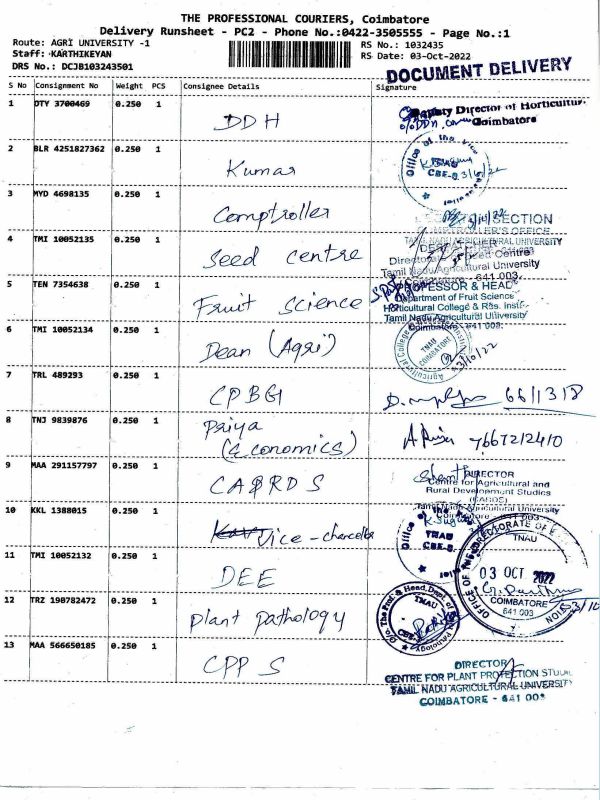 THE PROFESSIONAL COURIERS, Coimbatore
Delivery Runsheet - PC2 - Phone No.:0422-3505555 - Page No.:1
Route: AGRI UNIVERSITY -1
RS No.: 1032435
Staff: KARTHIKEYAN
RS Date: 03-Oct-2022
DRS No.: DCJB103243501
DOCUMENT DELIVERY
S No Consignment No Weight PCS Consignee Details Signature
1 DTY 3700469 0.250 1 DDH
Deputy Director of Horticultur
Coimbatore
2 BLR 4251827362 0.250 1 Kumar
Office of the Vice
TNAU
CBE-
3 MYD 4698135 0.250 1 Comptroller
SECTION
TAMIL NADU AGRICULTURAL UNIVERSITY
4 TMI 10052135 0.250 1 Seed centre
Seed Centre
Tamil Nadu Agricultural University
641 003.
5 TEN 7354638 0.250 1 Fruit science
PROFESSOR & HEAD
Department of Fruit Science
Horticultural College & Res. Instt.
Tamil Nadu Agricultural University
Coimbatore - 641 003.
6 TMI 10052134 0.250 1 Dean (Agri)
Agricultural College
TNAU
COIMBATORE
3/10/22
7 TRL 489293 0.250 1 CPBG
8 TNJ 9839876 0.250 1 Priya
(Economics)
9 MAA 291157797 0.250 1 CARDS
DIRECTOR
Centre for Agricultural and
Rural Development Studies
(CARDS)
Tamil Nadu Agricultural University
10 KKL 1388015 0.250 1 Vice - chancellor
Office of the
TNAU
CBE-
11 TMI 10052132 0.250 1 DEE
TNAU
03 OCT 2022
COIMBATORE
641 003
12 TRZ 190782472 0.250 1 plant pathology
O/o The Prof. & Head, Dept. of
Pathology
TNAU
13 MAA 566650185 0.250 1 CPPS
DIRECTOR
CENTRE FOR PLANT PROTECTION STUDI
TAMIL NADU AGRICULTURAL UNIVERSITY
COIMBATORE - 641 003